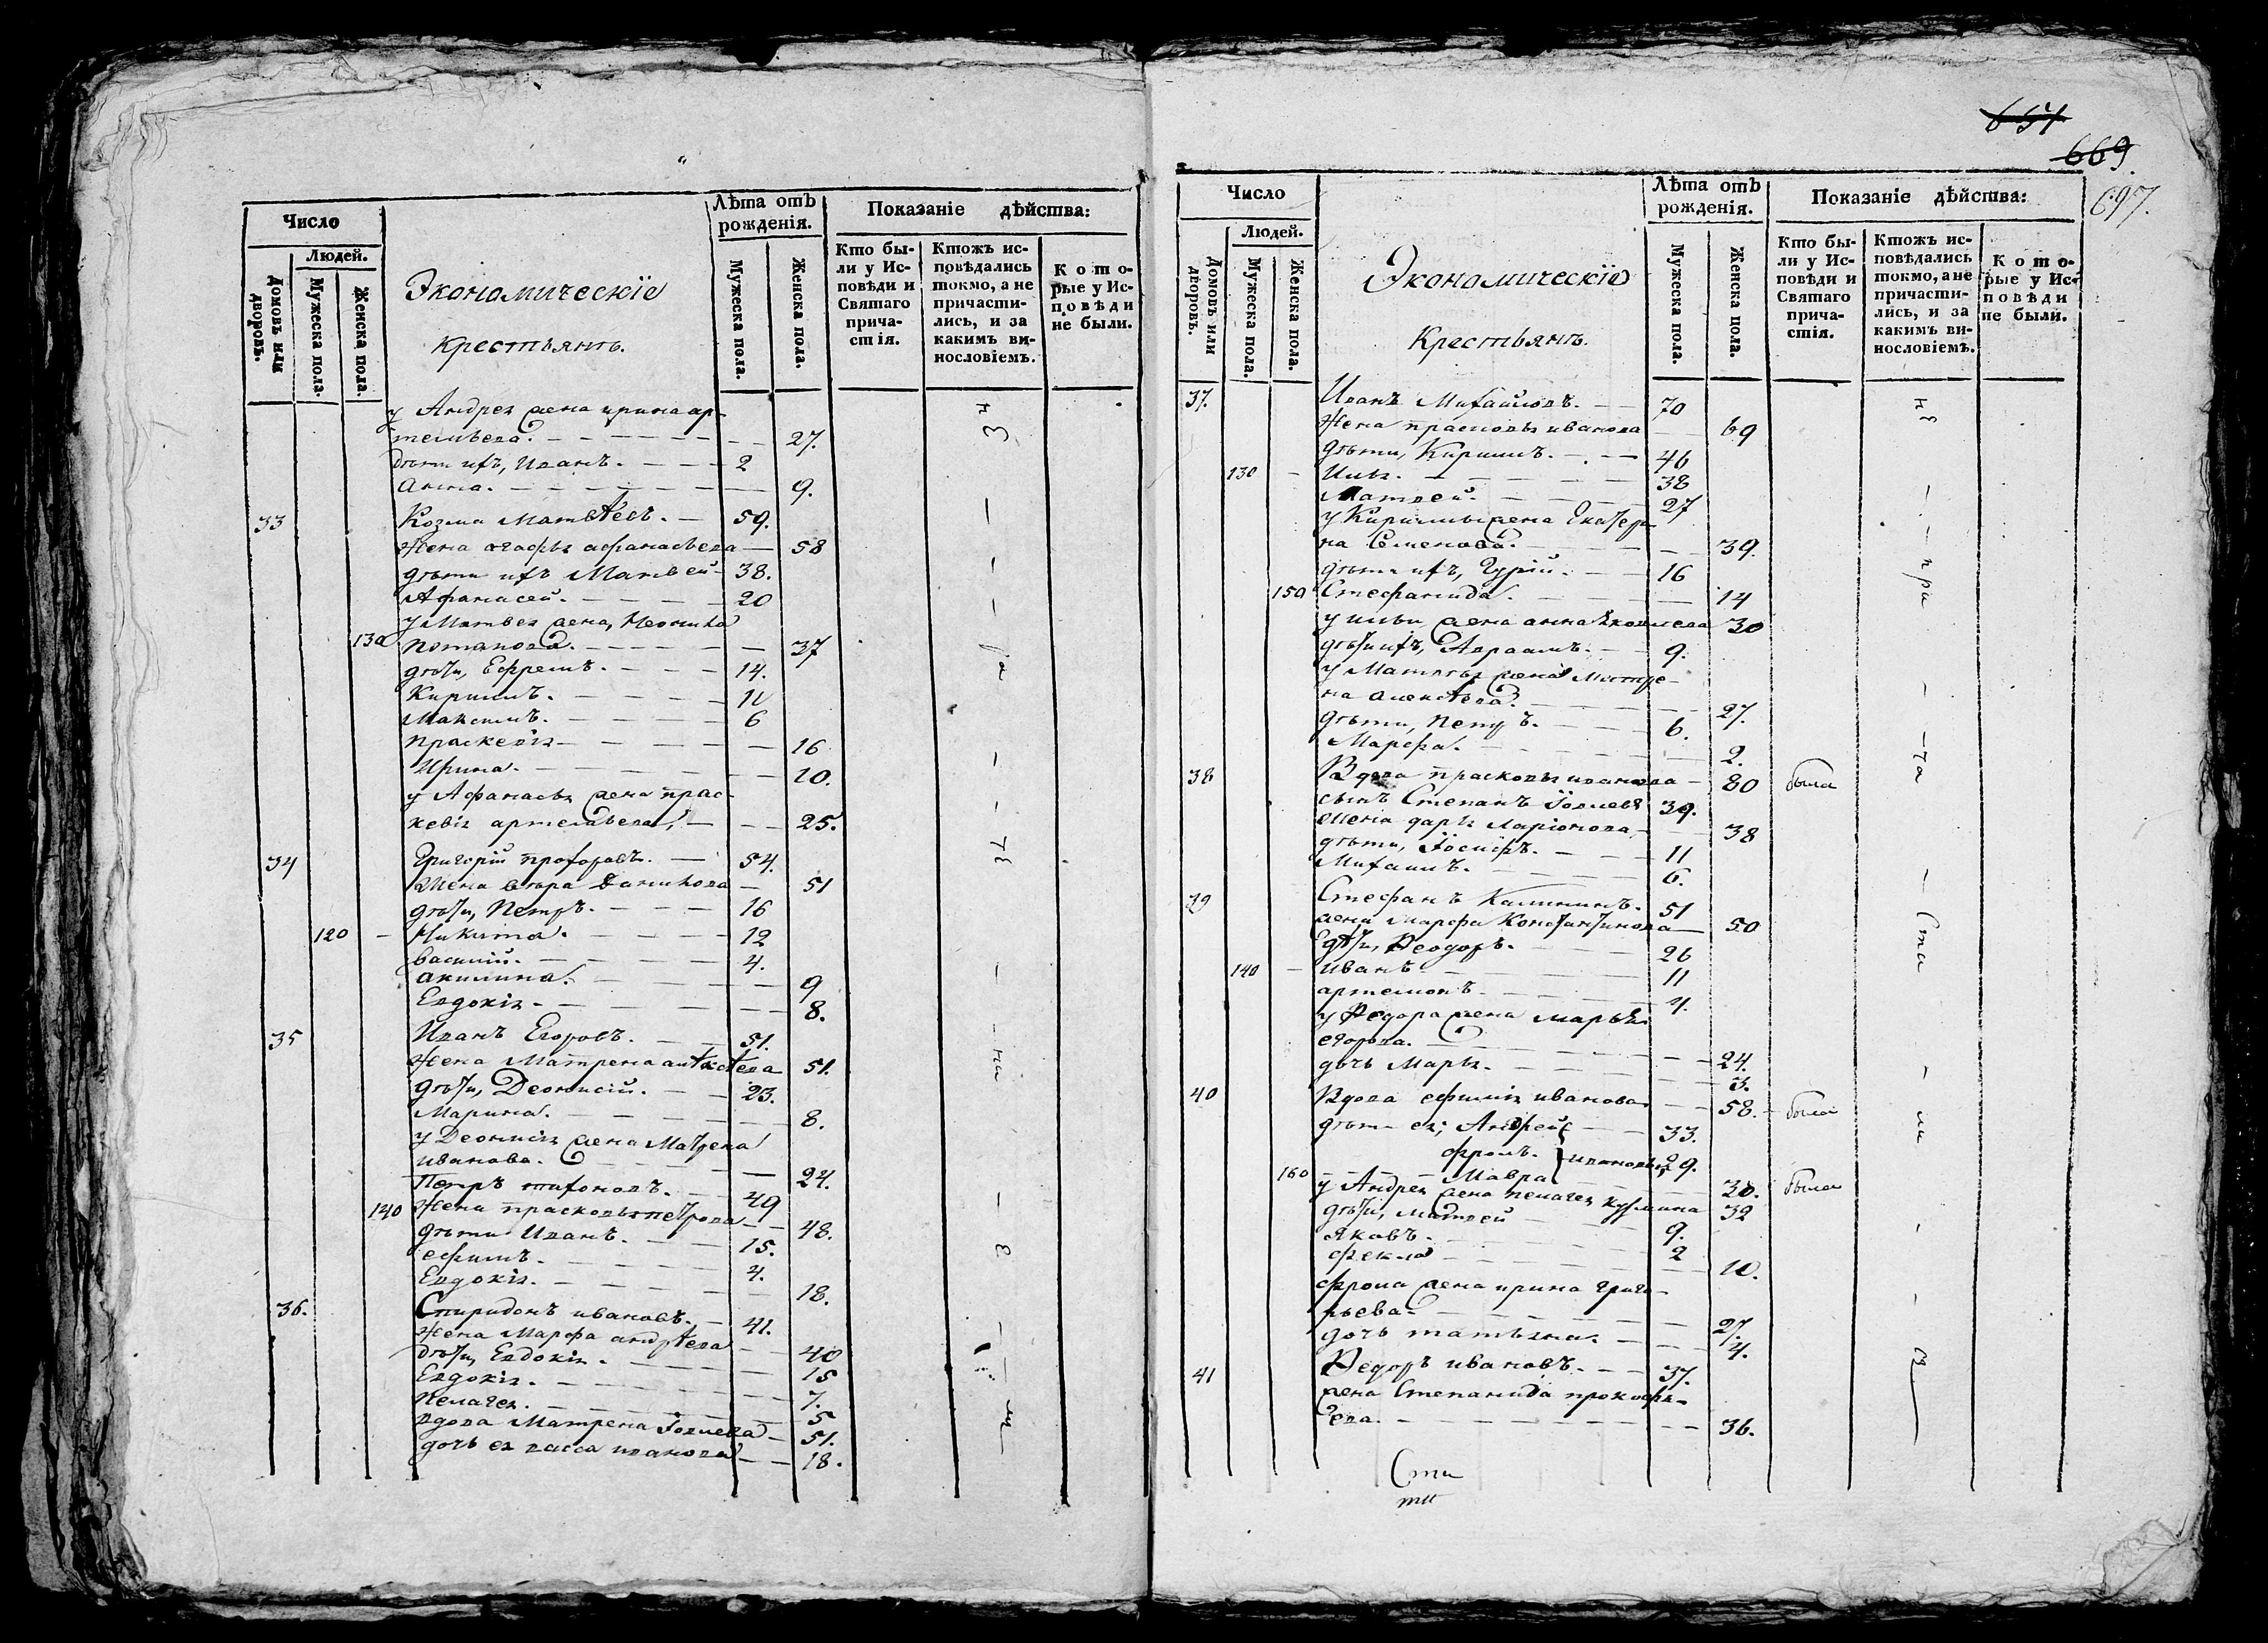 Число
Людей.
Домовъ или дворовъ.
Мужеска пола.
Женска пола.
Экономическіе
крестьянъ.
Лѣта отъ рожденія.
Мужеска пола.
Женска пола.
Показаніе дѣйства:
Кто были у Исповѣди и Святаго причастія.
Ктожъ исповѣдались токмо, а не причастились, и за какимъ винословіемъ.
Которые у Исповѣди не были.
у Андрея жена ирина ар-
темьева. 27.
дѣти ихъ, Иванъ. 2
Анна. 9.
33 Козма Матвѣевъ. 59.
жена агафья афанасьева 58
дѣти ихъ Матвей 38.
Афанасей. 20
у Матвея жена, Неонила
130 потапова. 37
дѣти, Ефремъ. 14.
Кириллъ. 11
Максимъ. 6
праскевія 16
Ирина. 10.
у Афанасья жена прас-
кевія артемьева, 25.
34 Григорій прохоровъ. 54.
жена вѣра данилова 51
дѣти, Петръ. 16
120 Никита. 12
василій. 4.
акилина. 9
Евдокія 8.
35 Иванъ Егоровъ. 51.
жена Матрена алексѣева 51.
дѣти, Деонисій. 23.
Марина. 8.
у Деонисія жена Матрена
иванова. 24.
Петръ тихоновъ. 49
140 жена прасковья петрова 48.
дѣти Иванъ. 15.
ефимъ. 4.
Евдокія. 18.
36. Спиридонъ ивановъ. 41.
жена Марфа андрѣева 40
дѣти, Евдокія. 15
Евдокія. 7.
Пелагея. 5
вдова Матрена Іовлева 51.
дочь ея васса иванова 18.
651
669.
697.
Число
Людей.
Домовъ или дворовъ.
Мужеска пола.
Женска пола.
Экономическіе
Крестьянъ.
Лѣта отъ рожденія.
Мужеска пола.
Женска пола.
Показаніе дѣйства:
Кто были у Исповѣди и Святаго причастія.
Ктожъ исповѣдались токмо, а не причастились, и за какимъ винословіемъ.
Которые у Исповѣди не были.
37. Иванъ Михайловъ. 70
жена прасковья иванова 69
дѣти, Кириллъ. 46
130 Илья. 38
Матвей. 27
у Кириллы жена Екатери-
на Семенова. 39.
дѣти ихъ, Гурій. 16
150 Стефанида. 14
у ильи жена анна яковлева 30
дѣти ихъ, Авраамъ. 9.
у Матвея жена Матре-
на алексѣева. 27.
дѣти, петръ. 6.
Марфа. 2.
38 Вдова прасковья иванова 80 была
сынъ Степанъ Іовлевъ 39.
жена дарья ларіонова 38
дѣти, Іосифъ. 11
Михаилъ. 6.
39 Стефанъ Калининъ. 51
жена марфа Константинова 50
дѣти, Ѳеодоръ. 26
140 иванъ 11
артемонъ 4.
у Ѳедора жена марья
егорова. 24.
дочь Марья. 3.
40 Вдова ефимія иванова 58. была
дѣти ея, Андрей 33.
фролъ. ивановы 29.
160 Мавра 30. была
у Андрея жена пелагея кузмина 32
дѣти, матвей 9.
Яковъ. 2
фекла 10.
фрола жена ирина григо-
рьева 27.
дочь татьяна. 4.
41 Ѳедоръ ивановъ. 37.
жена Степанида прокофь-
ева. 36.